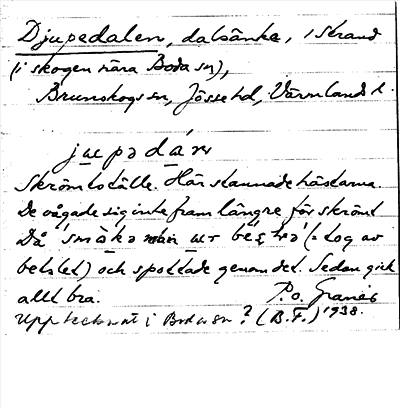 Djupedalen, dalsänka, i Strand
(i skogen nära Boda sn),
Brunskogs sn, Jösse hd, Värmlands l.
jupədár
Skrömtställe. Här stannade hästarna.
De vågade sig inte fram längre för skrömt
Då smäkə man ur (= tog av
betslet) och spottade genom det. Sedan gick
allt bra. P.o. Granér
Upptecknat i Boda sn? (B.F.) 1938.